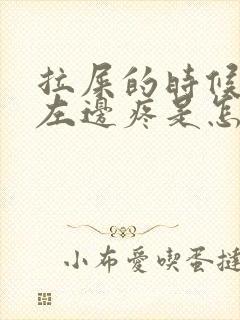 拉屎的時候
左邊疼是怎
小布愛喫蛋撻